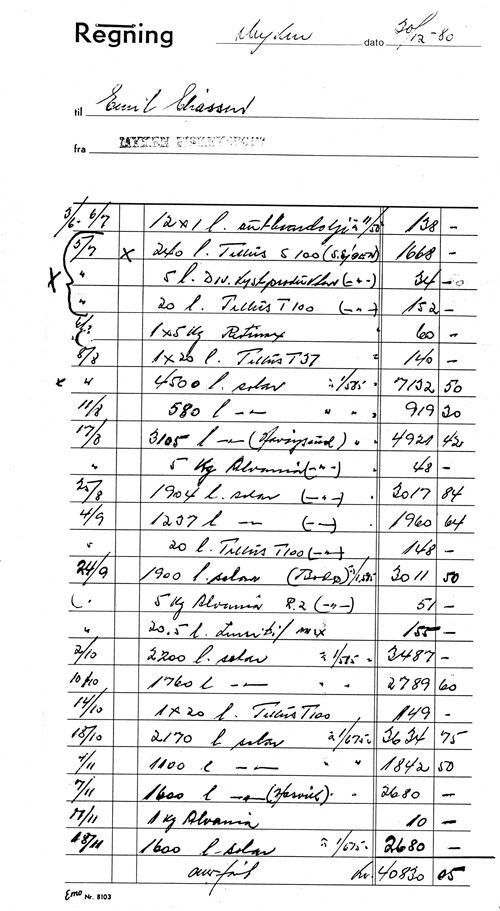 Regning
dato 30/12-80
til Emil
fra
3/6-6/7 12 x 1 l. 11/50 138 -
5/7 x 240 l. Tellus S 100 1668 -
" 5 l. Div. (-"-) 34 -
" 20 l. Tellus T 100 (-"-) 152 -
1 x 5 Kg Retinax 60 -
8/8 1 x 20 l. Tellus T 37 140 -
x " 4500 l. solar à 1/585 7132 50
11/8 580 l -"- " " 919 30
17/8 3105 l -"- " 4921 42
" 5 Kg Alvania (-"-) 48 -
25/8 1904 l. solar (-"-) 3017 84
4/9 1237 l -"- (-"-) 1960 64
" 20 l. Tellus T 100 (-"-) 148 -
24/9 1900 l. solar (Bodø) à 1/585 3011 50
5 Kg Alvania R.2 (-"-) 51 -
" 20.5 l. max 155 -
2/10 2200 l. solar à 1/585 3487 -
10/10 1760 l -"- " " 2789 60
14/10 1 x 20 l. Tellus T 100 149 -
15/10 2170 l solar à 1/675 3634 75
1100 l -"- " " 1842 50
7/11 1600 l -"- 2680 -
17/11 1 Kg Alvania 10 -
18/11 1600 l. solar à 1/675 2680 -
kr. 40830 05
Emo Nr. 8103